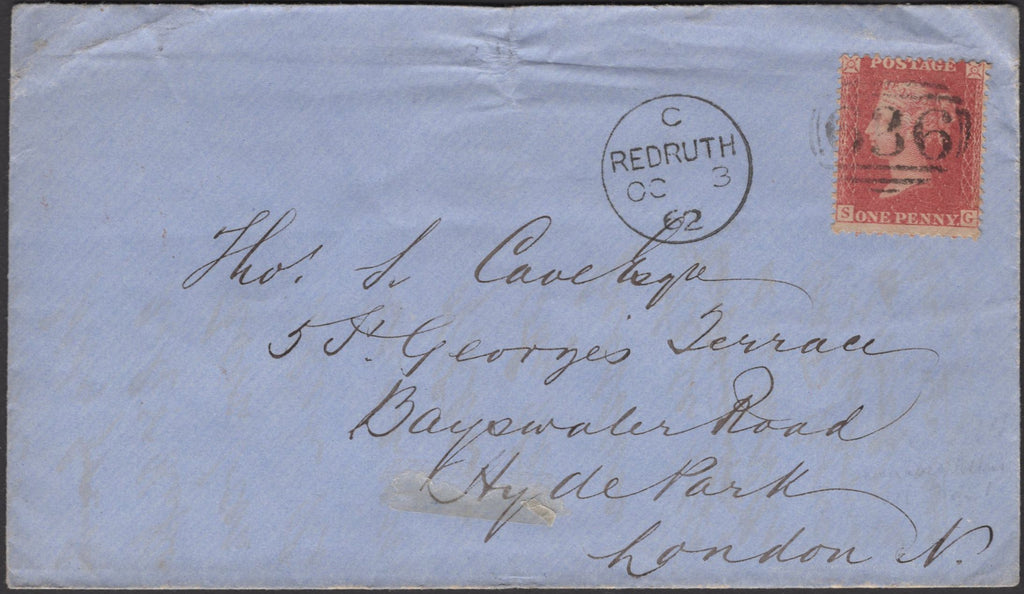 POSTAGE
636
S ONE PENNY G
C
REDRUTH
OC 3
62
Thos. S. Cave Esqre
5 St. George's Terrace
Bayswater Road
Hyde Park
London N.